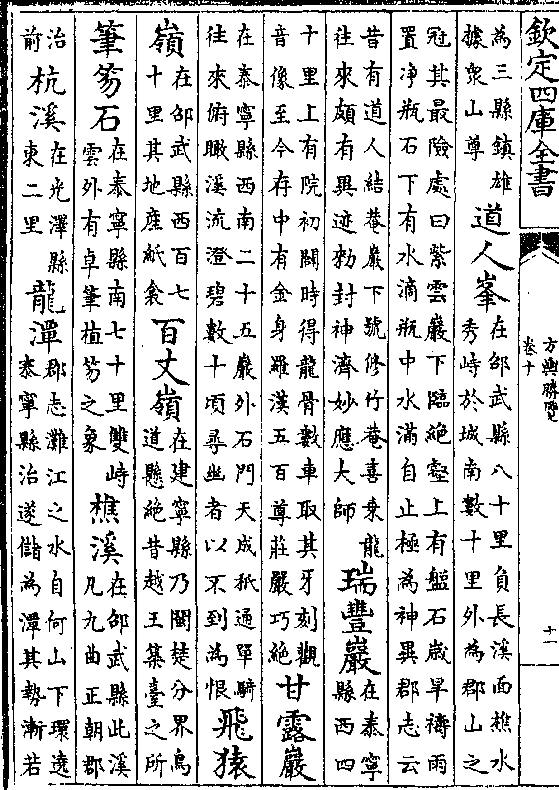 欽定四庫全書
方輿勝覽
卷十
十一
為三縣鎮雄
據衆山尊
道人峯
在邵武縣八十里負長溪面樵水
秀峙於城南數十里外為郡山之
冠其最險處曰紫雲巖下臨絶壑上有盤石嵗旱禱雨
置净瓶石下有水滴瓶中水滿自止極為神異郡志云
昔有道人結菴巖下號修竹菴喜乗龍
往來頗有異迹勑封神濟妙應大師
瑞豐巖
在泰寧
縣西四
十里上有院初闢時得龍骨數車取其牙刻觀
音像至今存中有金身羅漢五百尊莊嚴巧絶
甘露巖
在泰寧縣西南二十五巖外石門天成秖通單騎
往來俯瞰溪流澄碧數十頃尋幽者以不到為恨
飛猿
嶺
在邵武縣西百七
十里其地產紙衾
百丈嶺
在建寧縣乃閩楚分界鳥
道縣絶昔越王築臺之所
筆笏石
在泰寧縣南七十里雙峙
雲外有卓筆植笏之象
樵溪
在邵武縣此溪
凡九曲正朝郡
治
前
杭溪
在光澤縣
東二里
龍潭
郡志灘江之水自何山下環遶
泰寧縣治遂儲為潭其勢漸若